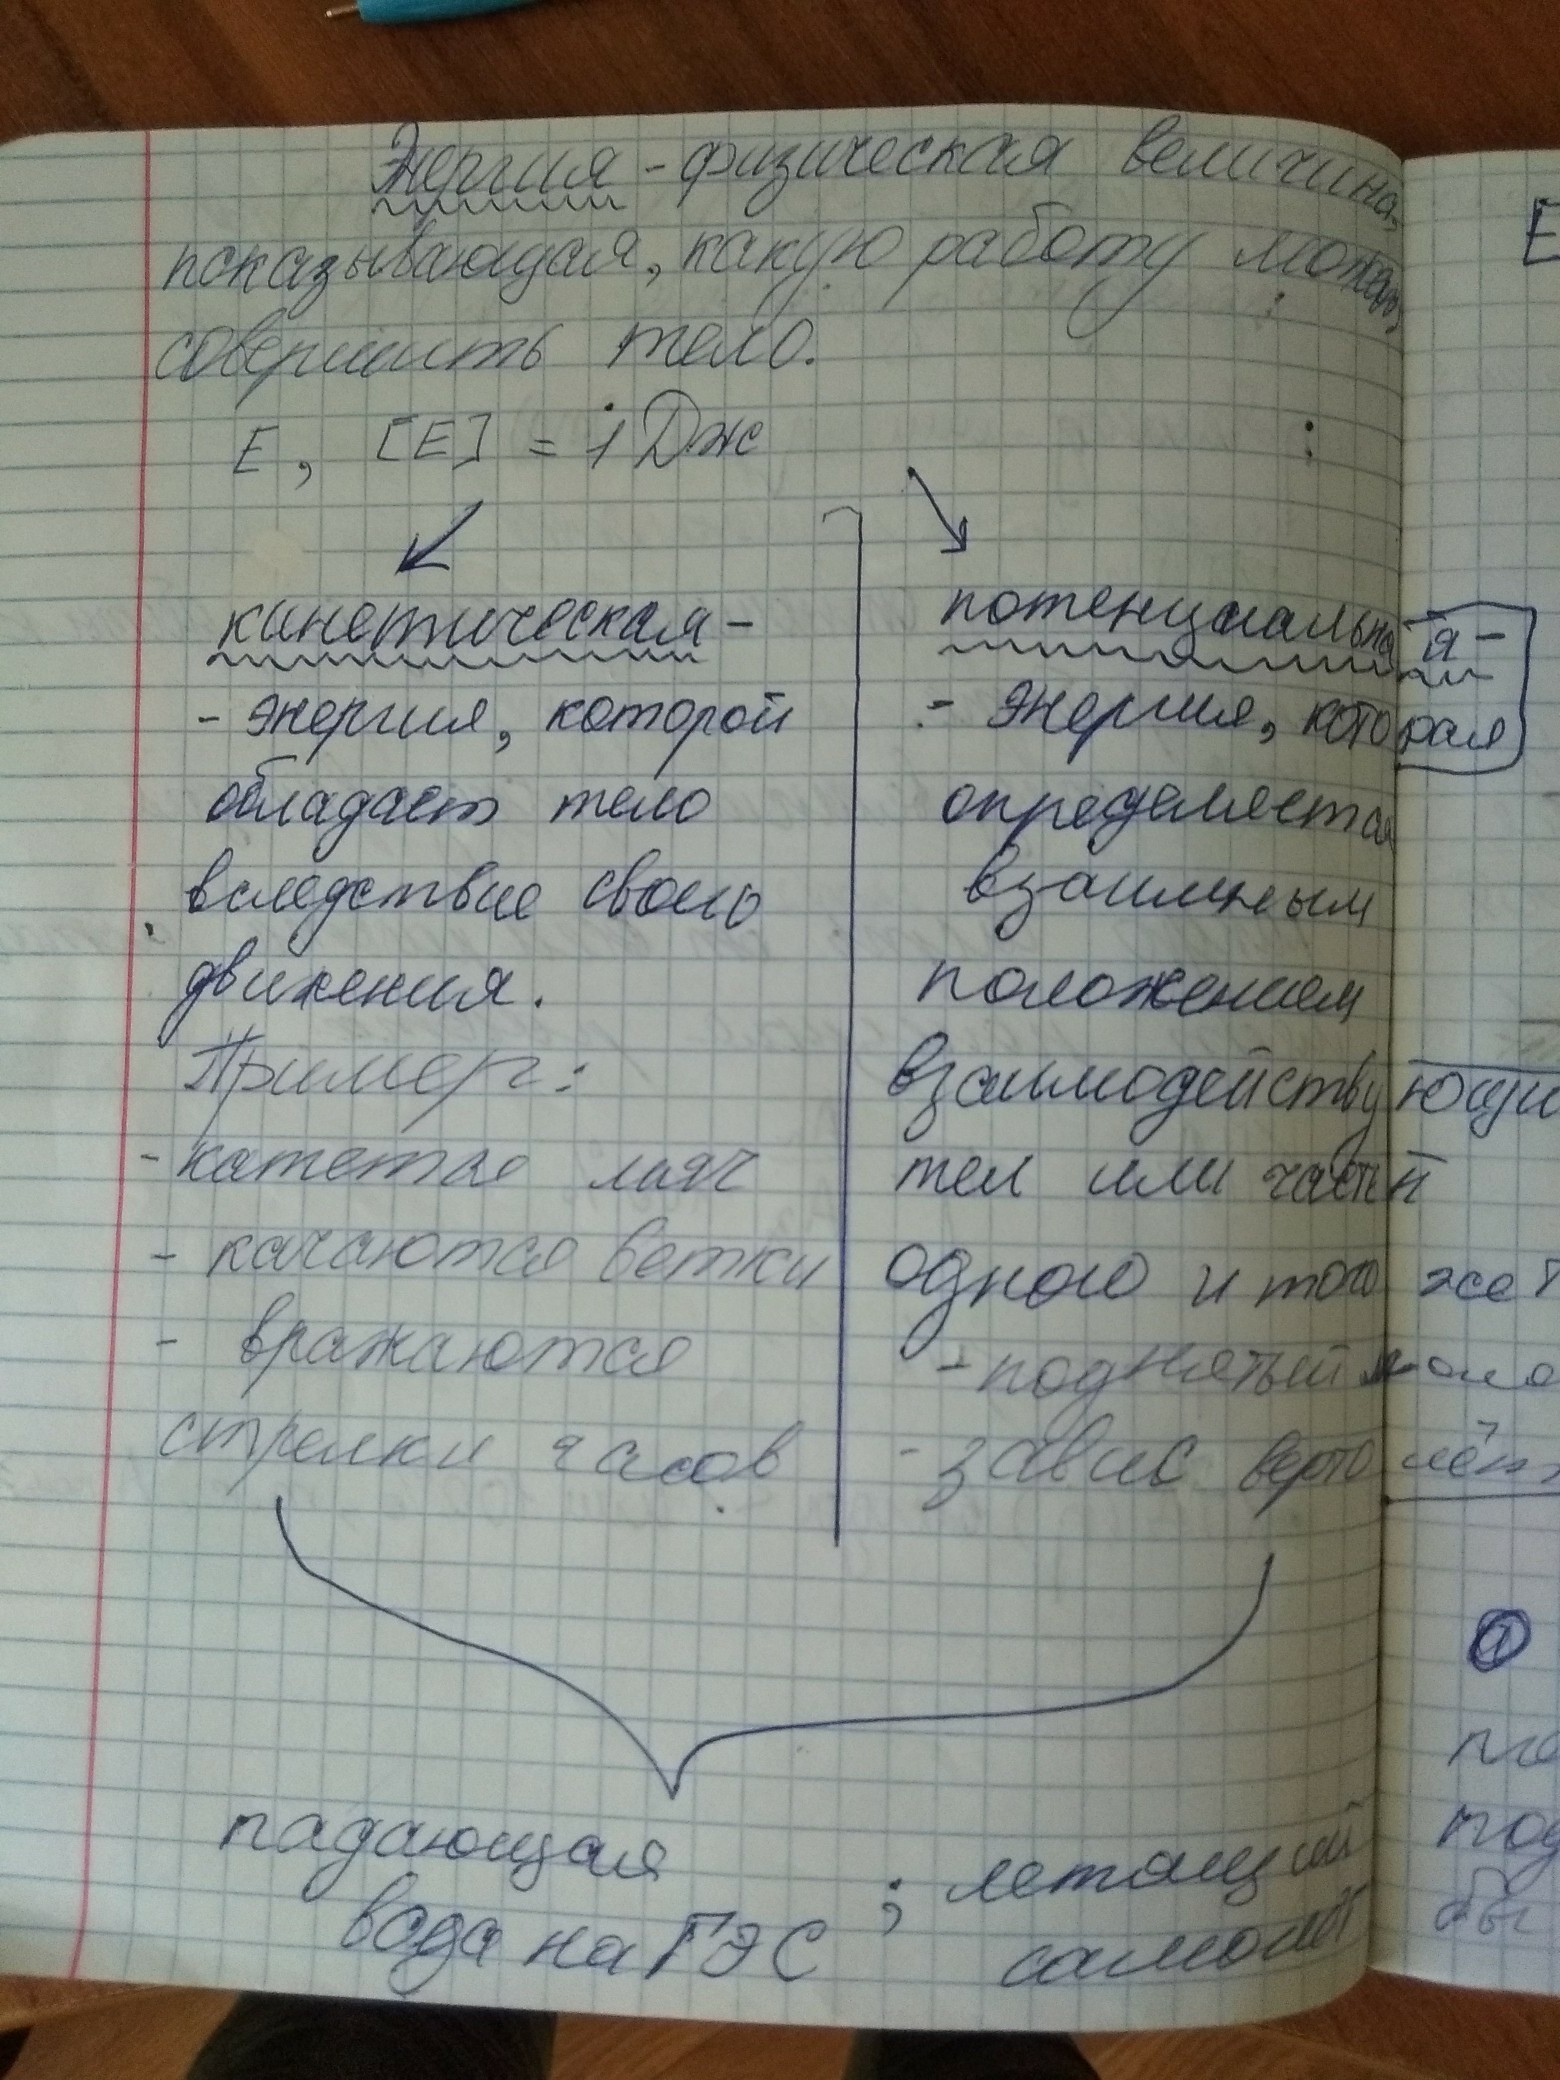 Энергия - физическая величина,
показывающая, какую работу может
совершить тело.
E, [E] = 1 Дж
кинетическая -
- энергия, которой
обладает тело
вследствие своего
движения.
Пример:
- катется мяч
- качаются ветки
- вражаются
стрелки часов
потенциальная -
- энергия, которая
определяется
взаимным
положением
взаимодействующи
тел или частей
одного и того же т
- поднятый моло
- завис вертолёт
падающая
вода на ГЭС
; летящий
самолёт
E
1
под